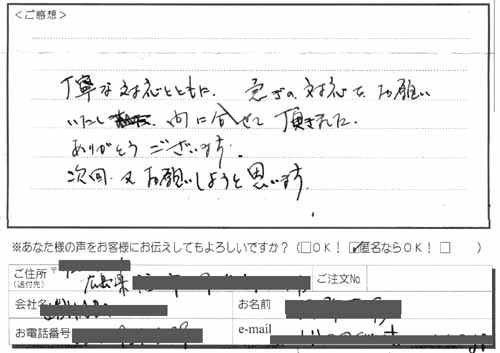 ＜ご感想＞
丁寧な対応とともに、急ぎの対応をお願い
いたし 間に合せて頂きました.
ありがとうございます.
次回.又お願いしようと思います.
※あなた様の声をお客様にお伝えしてもよろしいですか？（□OK！ ☑匿名ならOK！ □　）
ご住所 〒
（送付先） 広島県
ご注文No.
会社名
お名前
お電話番号
e-mail